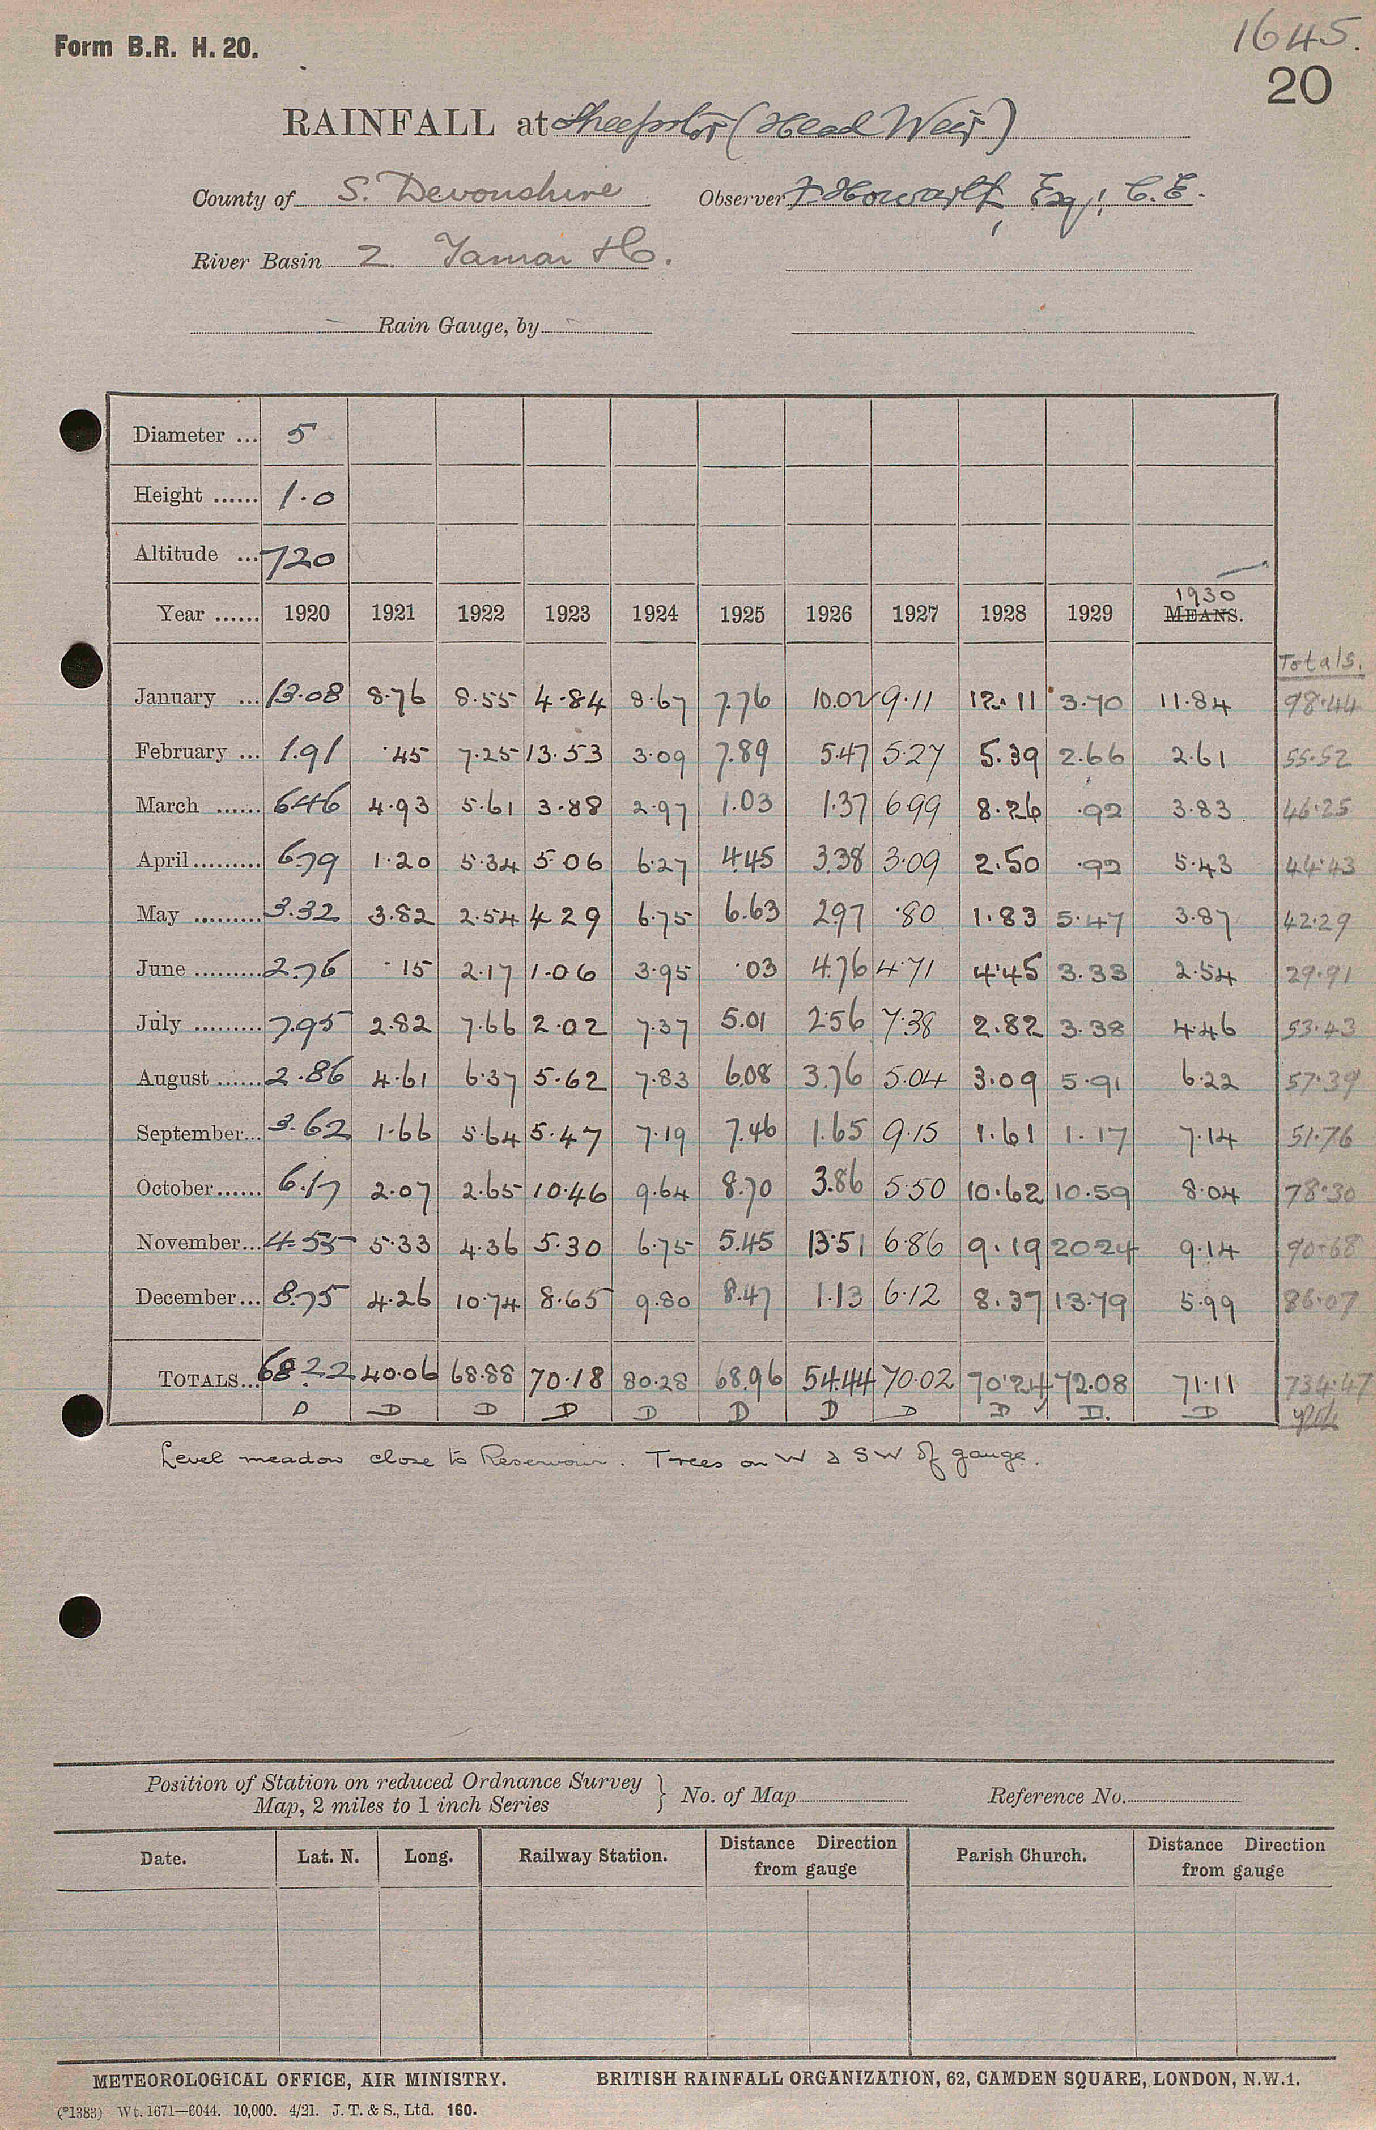 Form B.R. H. 20.
1645.
20
RAINFALL at Sheepstor (Head Weir)
County of S. Devonshire Observer F Howarth, Esq, C.E.
River Basin 2 Tamar &c.
Rain Gauge, by
Diameter ... 5
Height ...... 1.0
Altitude ... 720
Year ...... 1920 1921 1922 1923 1924 1925 1926 1927 1928 1929 1930 MEANS.
Totals.
January ... 13.08 8.76 8.55 4.84 8.67 7.76 10.02 9.11 12.11 3.70 11.84 98.44
February ... 1.91 .45 7.25 13.53 3.09 7.89 5.47 5.27 5.39 2.66 2.61 55.52
March ...... 6.46 4.93 5.61 3.88 2.97 1.03 1.37 6.99 8.26 .92 3.83 46.25
April ......... 6.79 1.20 5.34 5.06 6.27 4.45 3.38 3.09 2.50 .92 5.43 44.43
May ......... 3.32 3.82 2.54 4.29 6.75 6.63 2.97 .80 1.83 5.47 3.87 42.29
June ......... 2.76 .15 2.17 1.06 3.95 .03 4.76 4.71 4.45 3.33 2.54 29.91
July ......... 7.95 2.82 7.66 2.02 7.37 5.01 2.56 7.38 2.82 3.38 4.46 53.43
August ...... 2.86 4.61 6.37 5.62 7.83 6.08 3.76 5.04 3.09 5.91 6.22 57.39
September... 3.62 1.66 5.64 5.47 7.19 7.46 1.65 9.15 1.61 1.17 7.14 51.76
October...... 6.17 2.07 2.65 10.46 9.64 8.70 3.86 5.50 10.62 10.59 8.04 78.30
November... 4.55 5.33 4.36 5.30 6.75 5.45 13.51 6.86 9.19 20.24 9.14 90.68
December... 8.75 4.26 10.74 8.65 9.80 8.47 1.13 6.12 8.37 13.79 5.99 86.07
TOTALS... 68.22 40.06 68.88 70.18 80.28 68.96 54.44 70.02 70.24 72.08 71.11 734.47
D D D D D D D D D D. D
Level meadow close to Reservoir. Trees on W & SW of gauge.
Position of Station on reduced Ordnance Survey
Map, 2 miles to 1 inch Series } No. of Map Reference No.
Date. Lat. N. Long. Railway Station. Distance Direction from gauge Parish Church. Distance Direction from gauge
METEOROLOGICAL OFFICE, AIR MINISTRY. BRITISH RAINFALL ORGANIZATION, 62, CAMDEN SQUARE, LONDON, N.W.1.
(*1383) Wt. 1671—6044. 10,000. 4/21. J. T. & S., Ltd. 160.